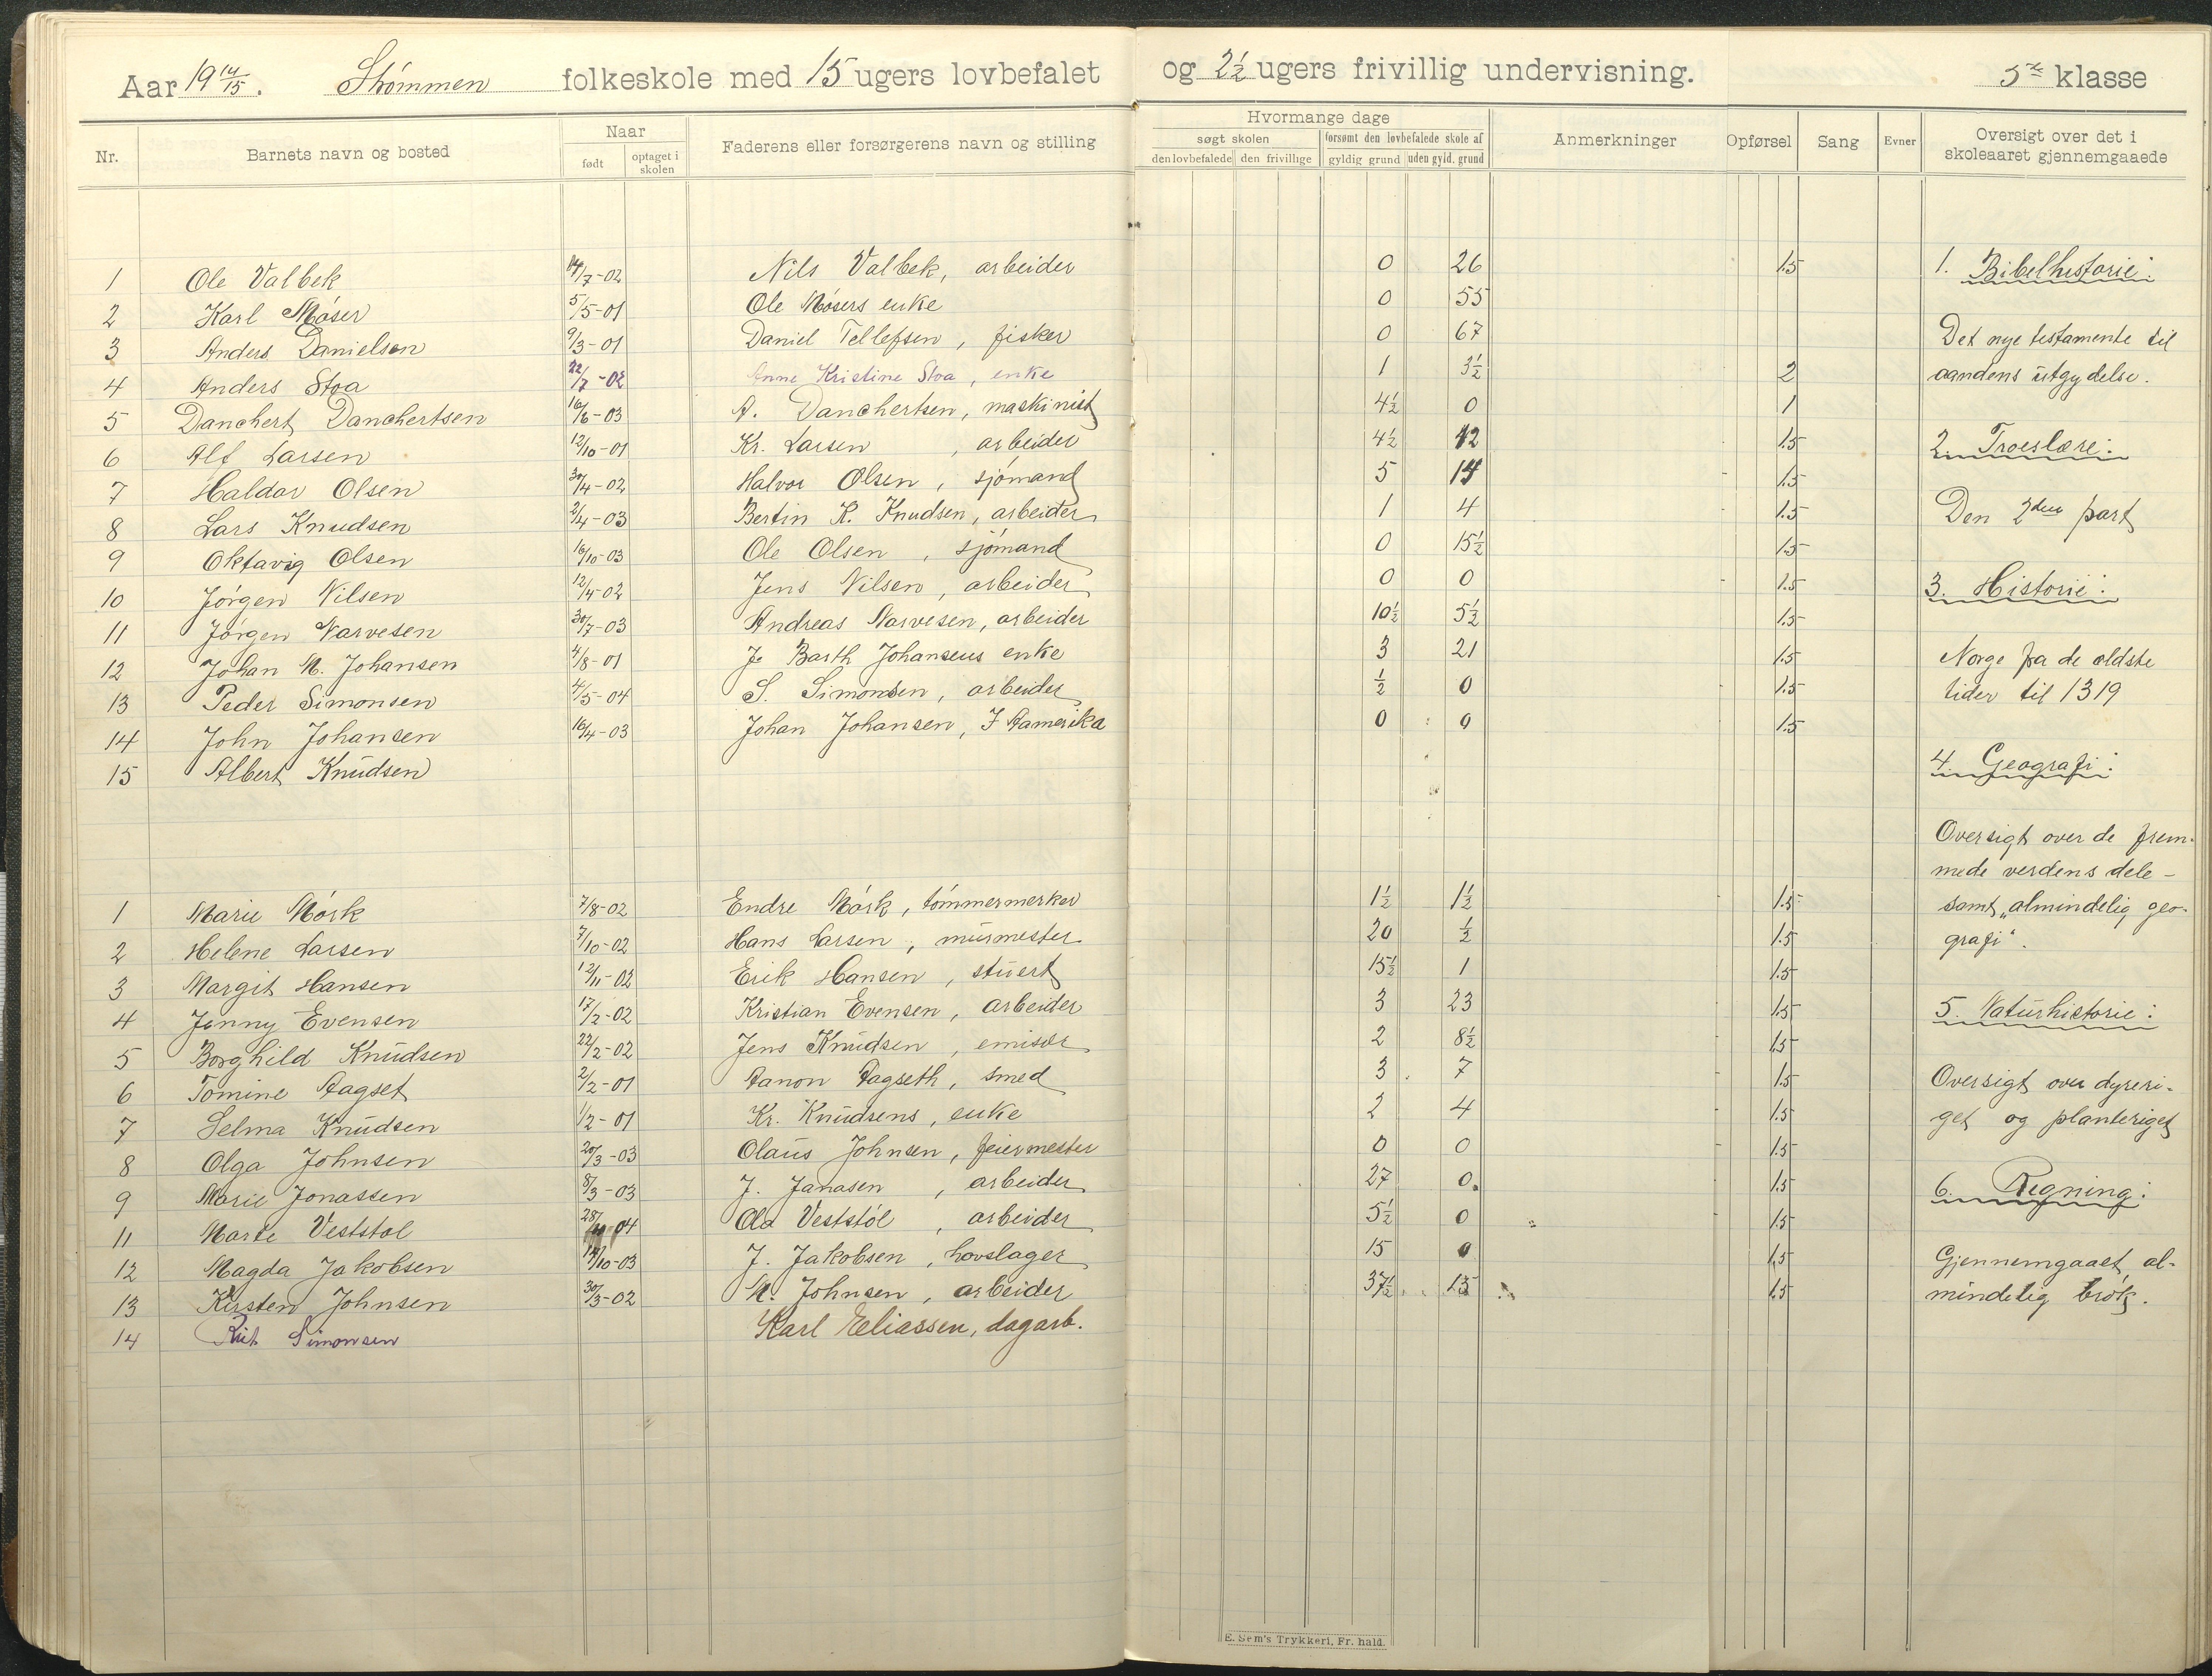 Aar 19 14/15. Strømmen folkeskole med 15 ugers lovbefalet og 2½ ugers frivillig undervisning. 5te klasse
Nr. Barnets navn og bosted Naar født optaget i skolen Faderens eller forsørgerens navn og stilling Hvormange dage søgt skolen den lovbefalede den frivillige forsømt den lovbefalede skole af gyldig grund uden gyld. grund Anmerkninger Opførsel Sang Evner Oversigt over det i skoleaaret gjennemgaaede
1 Ole Valbek 14/7-02 Nils Valbek, arbeider 0 26 1.5
2 Karl Møser 5/5-01 Ole Møsers enke 0 55
3 Anders Danielsen 9/3-01 Daniel Tellefsen, fisker 0 67
4 Anders Stoa 22/7-02 Anne Kristine Stoa, enke 1 3½ 2
5 Danchert Danchertsen 16/6-03 A. Danchertsen, maskinist 4½ 0 1
6 Alf Larsen 12/10-01 Kr. Larsen, arbeider 4½ 12 1.5
7 Haldor Olsen 30/4-02 Halvor Olsen, sjømand 5 14 1.5
8 Lars Knudsen 2/4-03 Bertin K. Knudsen, arbeider 1 4 1.5
9 Oktavig Olsen 16/10-03 Ole Olsen, sjømand 0 15½ 1.5
10 Jørgen Nilsen 12/4-02 Jens Nilsen, arbeider 0 0 1.5
11 Jørgen Narvesen 30/7-03 Andreas Narvesen, arbeider 10½ 5½ 1.5
12 Johan M. Johansen 4/8-01 J. Barth Johansens enke 3 21 1.5
13 Peder Simonsen 4/5-04 S. Simonsen, arbeider ½ 0 1.5
14 John Johansen 16/4-03 Johan Johansen, I Aamerika 0 0 1.5
15 Albert Knudsen
1 Marie Mørk 7/8-02 Endre Mørk, tømmermerker 1½ 1½ 1.5
2 Helene Larsen 7/10-02 Hans Larsen, murmester 20 ½ 1.5
3 Margit Hansen 12/11-02 Erik Hansen, stuert 15½ 1 1.5
4 Jenny Evensen 17/2-02 Kristian Evensen, arbeider 3 23 1.5
5 Borghild Knudsen 22/2-02 Jens Knudsen, emisær 2 8½ 1.5
6 Tomine Aagset 2/2-01 Aanon Aagseth, smed 3 7 1.5
7 Selma Knudsen 1/2-01 Kr. Knudsens, enke 2 4 1.5
8 Olga Johnsen 20/3-03 Olaus Johnsen, feiermester 0 0 1.5
9 Marie Jonassen 8/3-03 J. Janasen, arbeider 27 0 1.5
11 Marte Veststøl 04 Ola Veststøl, arbeider 5½ 0 1.5
12 Magda Jakobsen 14/10-03 J. Jakobsen, hovslager 15 0 1.5
13 Kirsten Johnsen 30/3-02 M. Johnsen, arbeider 37½ 13 1.5
14 Rut Simonsen Karl Eeliassen, dagarb.
1. Bibelhistorie:
Det nye testamente til
aandens utgydelse.
2. Troeslære:
Den 2den part
3. Historie:
Norge fra de ældste
tider til 1319
4. Geografi:
Oversigt over de frem-
mede verdens dele -
samt "almindelig geo-
grafi".
5. Naturhistorie:
Oversigt over dyreri-
get og planteriget
6. Regning:
Gjennemgaaet al-
mindelig brøk.
E. Sem's Trykkeri, Fr. hald.